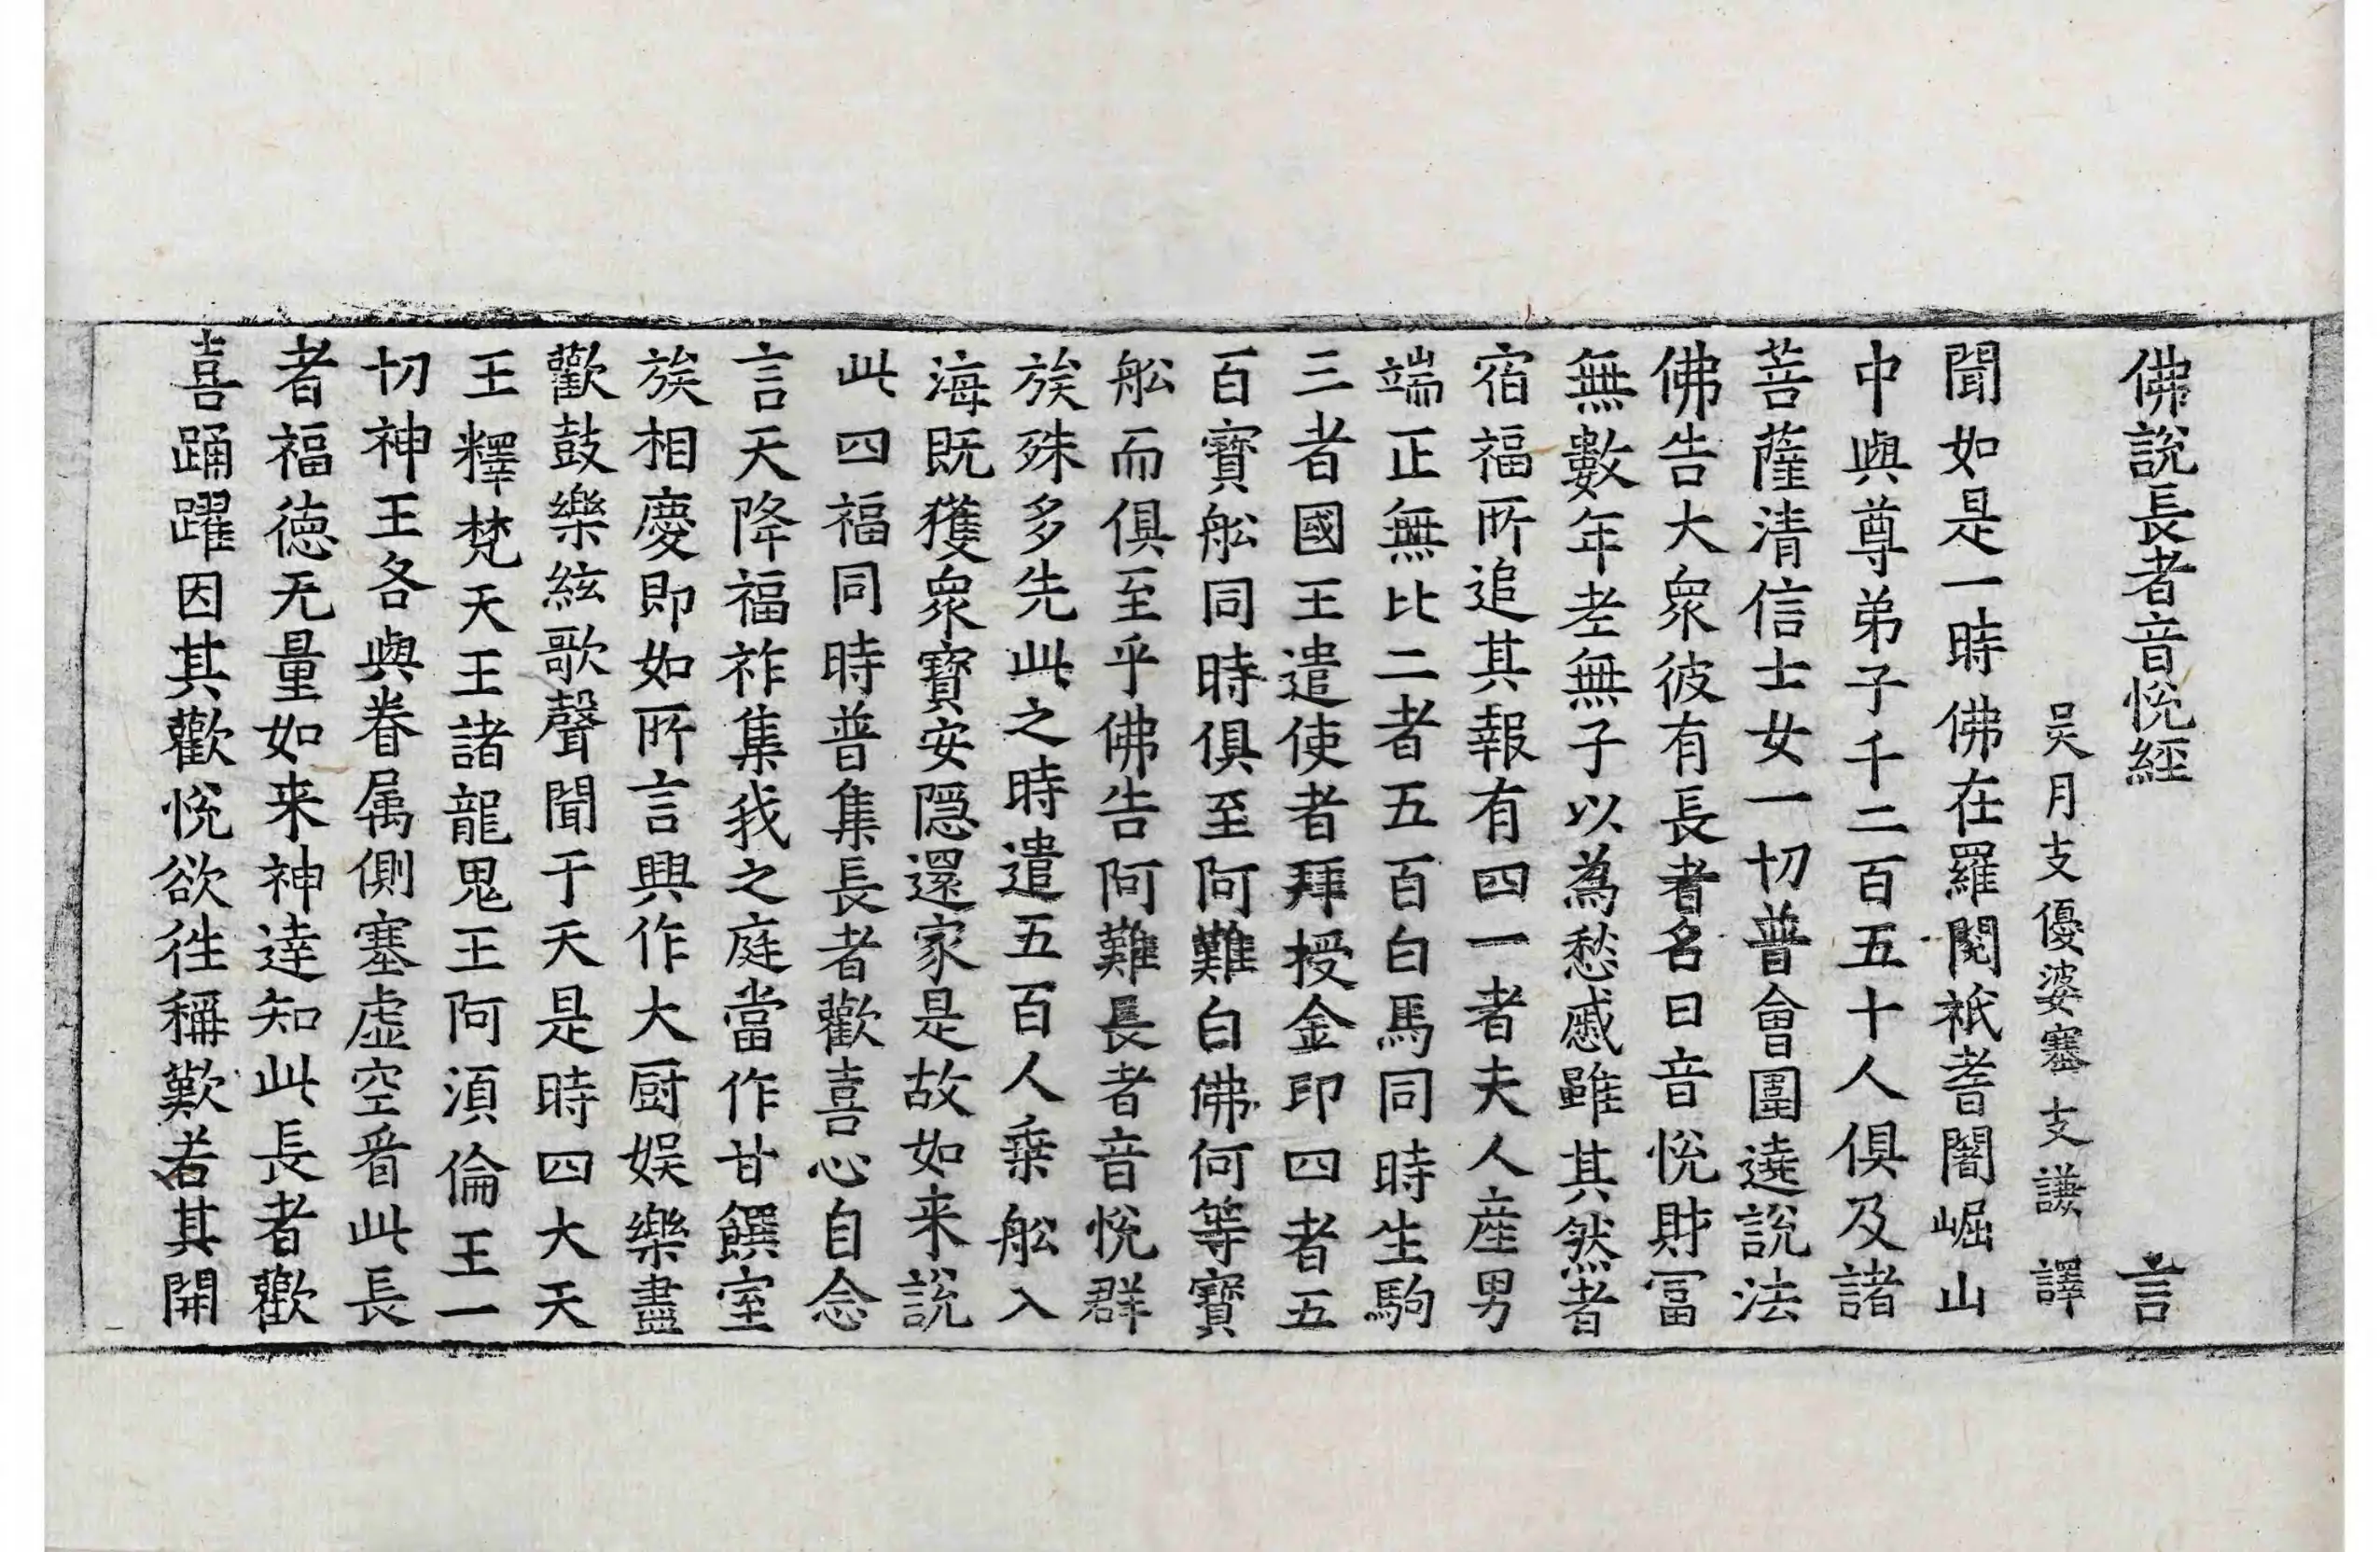 佛說長者音悅經　言
吳月支優婆塞支謙譯
聞如是一時佛在羅閱祇耆闍崛山
中與尊弟子千二百五十人俱及諸
菩薩清信士女一切普會圍遶說法
佛告大眾彼有長者名曰音悅財冨
無數年耊無子以為愁慼雖其然者
宿福所追其報有四一者夫人産男
端正無比二者五百白馬同時生駒
三者國王遣使者拜授金印四者五
百寶舩同時俱至阿難白佛何等寶
舩而俱至乎佛告阿難長者音悅群
族殊多先此之時遣五百人乗舩入
海既獲眾寶安隠還家是故如来說
此四福同時普集長者歡喜心自念
言天降福祚集我之庭當作甘饌室
族相慶即如所言興作大厨娛樂盡
歡鼓樂絃歌聲聞于天是時四大天
王釋梵天王諸龍鬼王阿須倫王一
切神王各與眷属側塞虛空㸔此長
者福德无量如来神達知此長者歡
喜踊躍因其歡悅欲往稱歎若其開